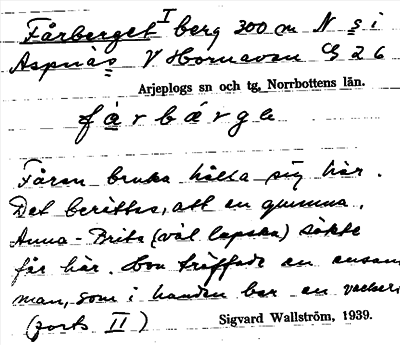 Fårberget I berg 300 m N s i
Aspnäs V Hornavan C5 26
Arjeplogs sn och tg, Norrbottens län.
fårbärge
Fåren bruka hålla sig här.
Det berättes, att en gumma,
Anna-Brita (väl lapska) sökte
får här. Hon träffade en ensam
man, som i handen bar en vacker
(forts II)
Sigvard Wallström, 1939.